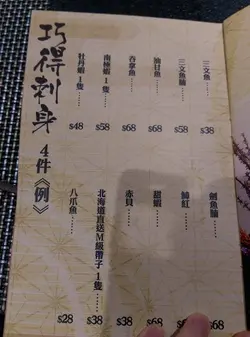 巧得刺身
4件《例》
三文魚……$38
三文魚腩……$58
油甘魚……$68
吞拿魚……$68
南極蝦1隻……$58
牡丹蝦1隻……$48
劍魚腩……$68
鰤紅……
甜蝦……$68
赤貝……$38
北海道直送M級帶子1隻……$38
八爪魚……$28